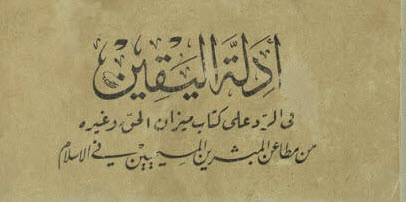 أدلة اليقين
فى الرد على كتاب ميزان الحق وغيره
من مطاعن المبشرين المسيحيين فى الاسلام